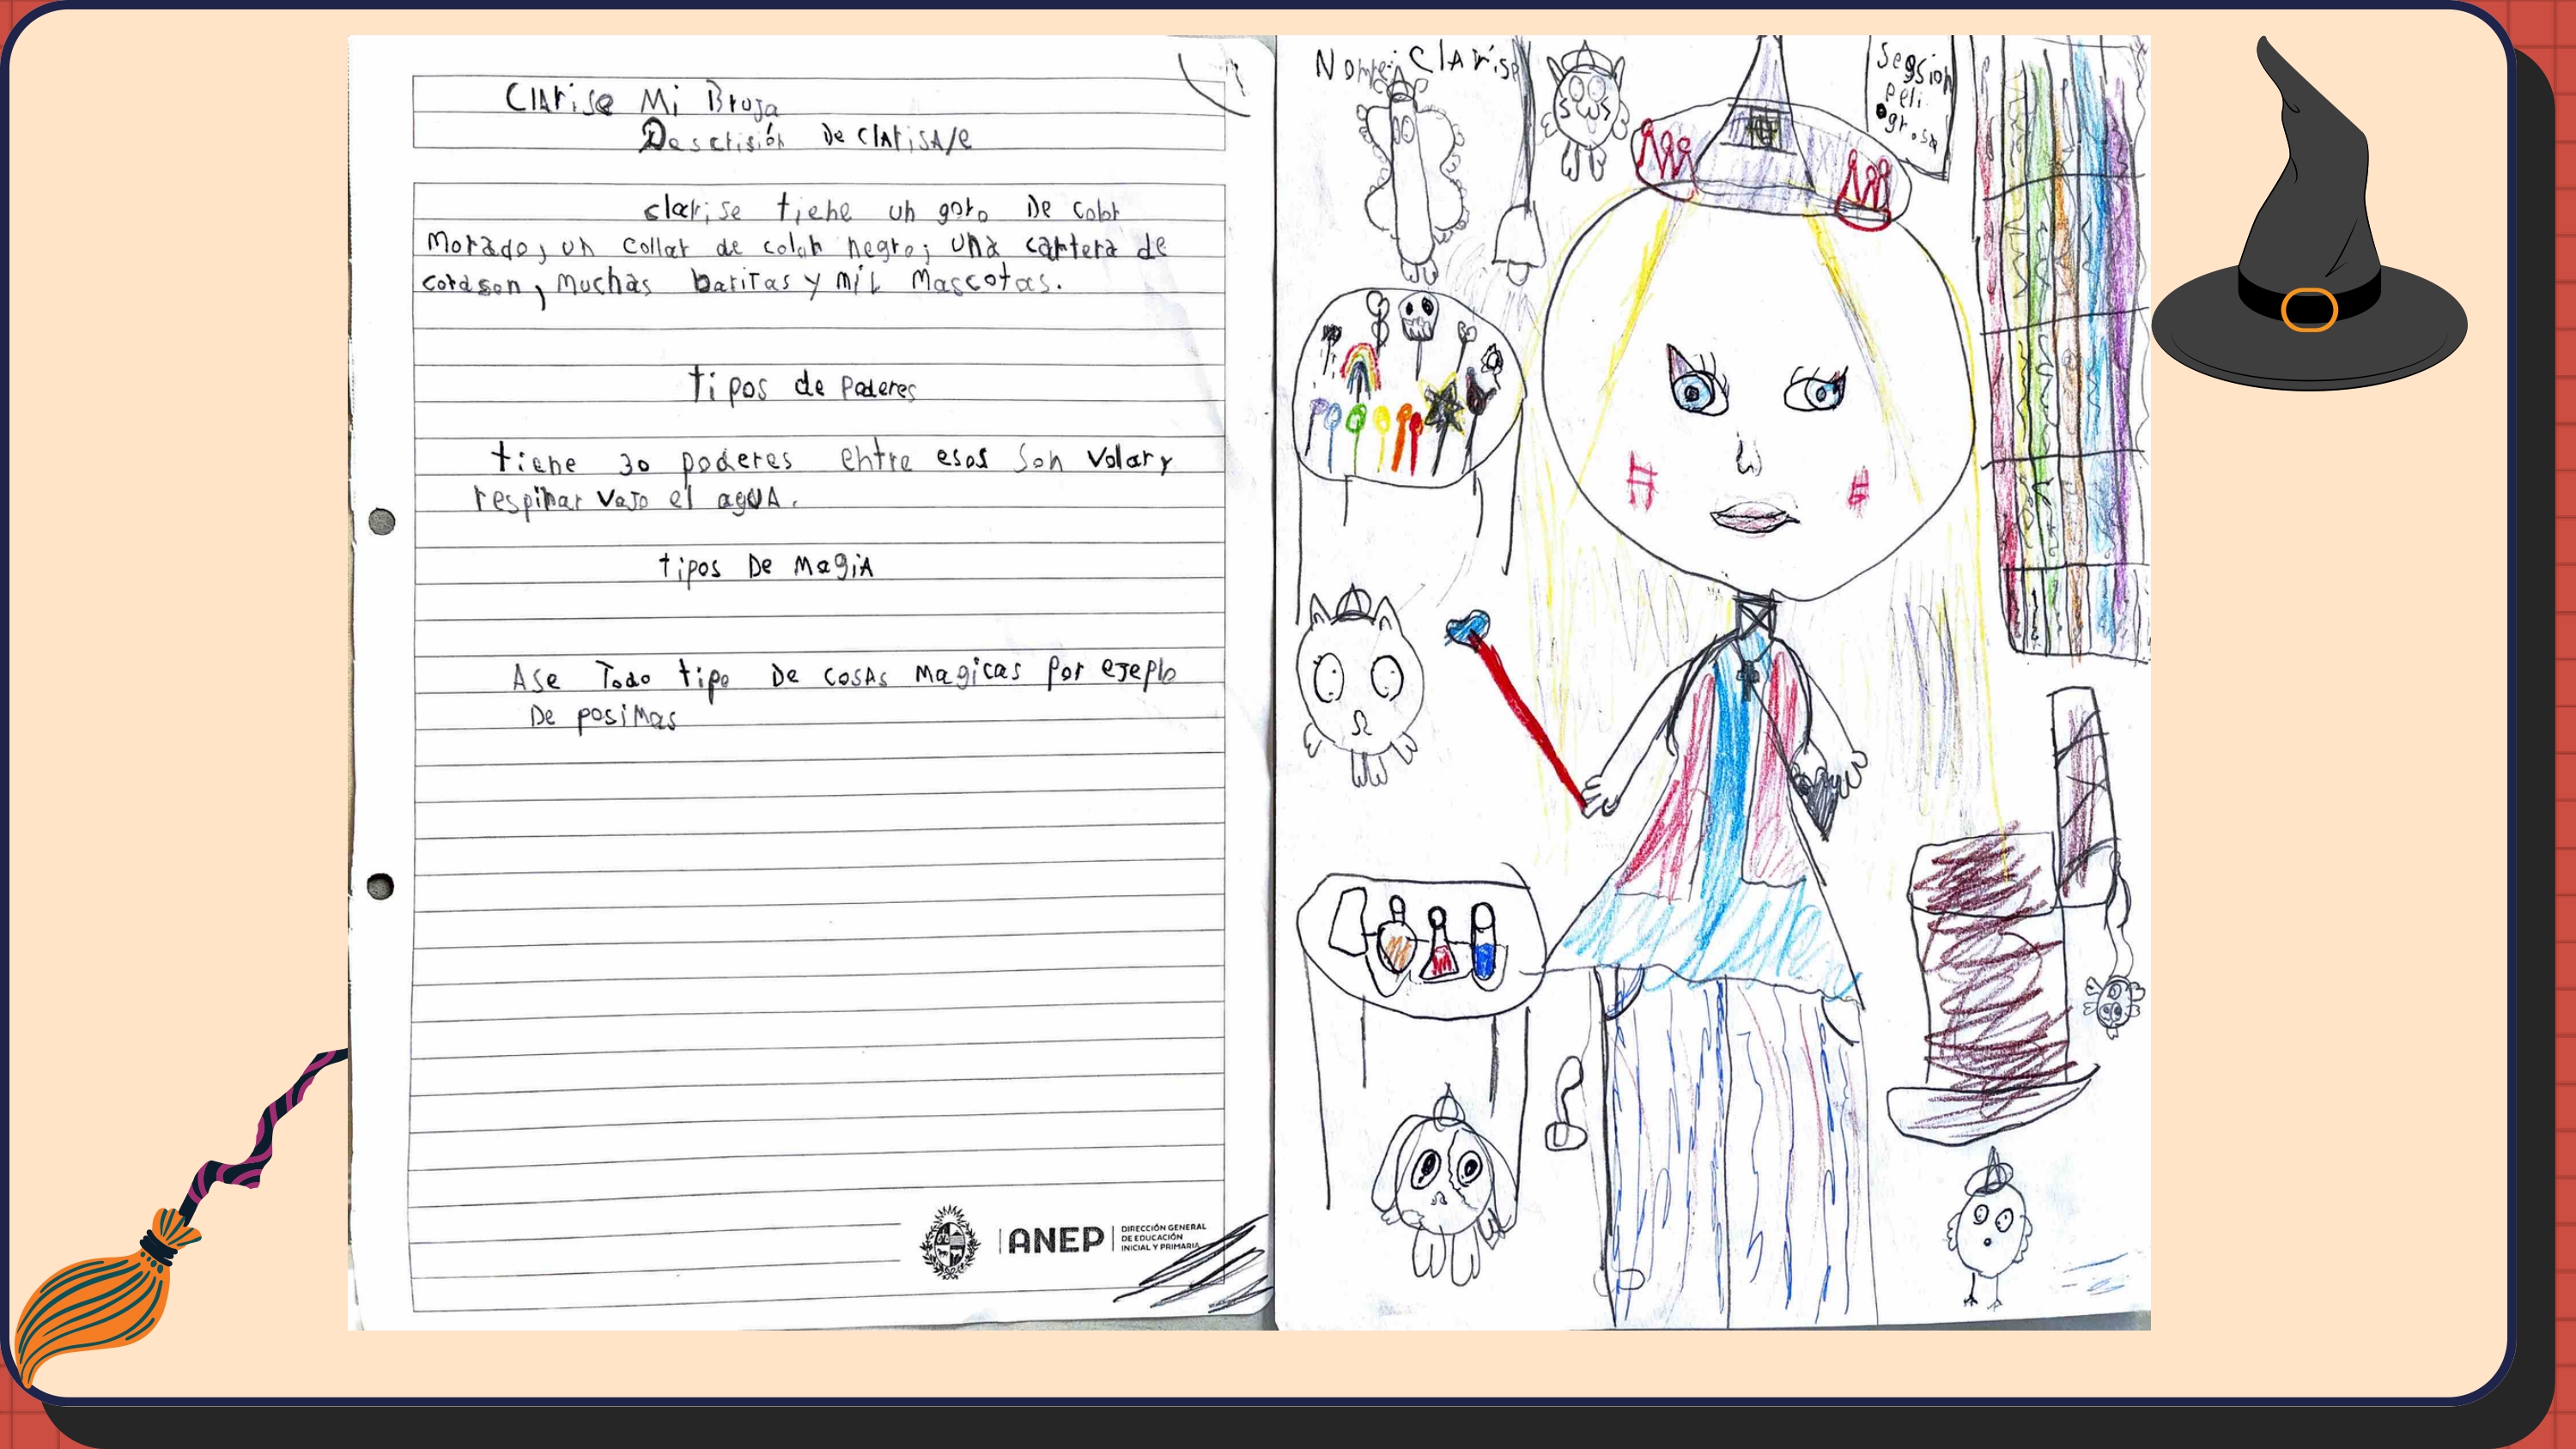 Clarise Mi Bruja
Descrisión De ClAriSA/e
clarise tiene un goro De color
Morado, un collar de color negro; una cartera de
corason, muchas baritas y mil Mascotas.
tipos de Poderes
tiene 30 poderes entre esos son Volar y
respirar vajo el agUA.
tipos De MagiA
Ase Todo tipo De cosAs Magicas por ejeplo
De posimas
ANEP
DIRECCIÓN GENERAL
DE EDUCACIÓN
INICIAL Y PRIMARIA
Nomre: ClArise
Segsion
peli
grosa